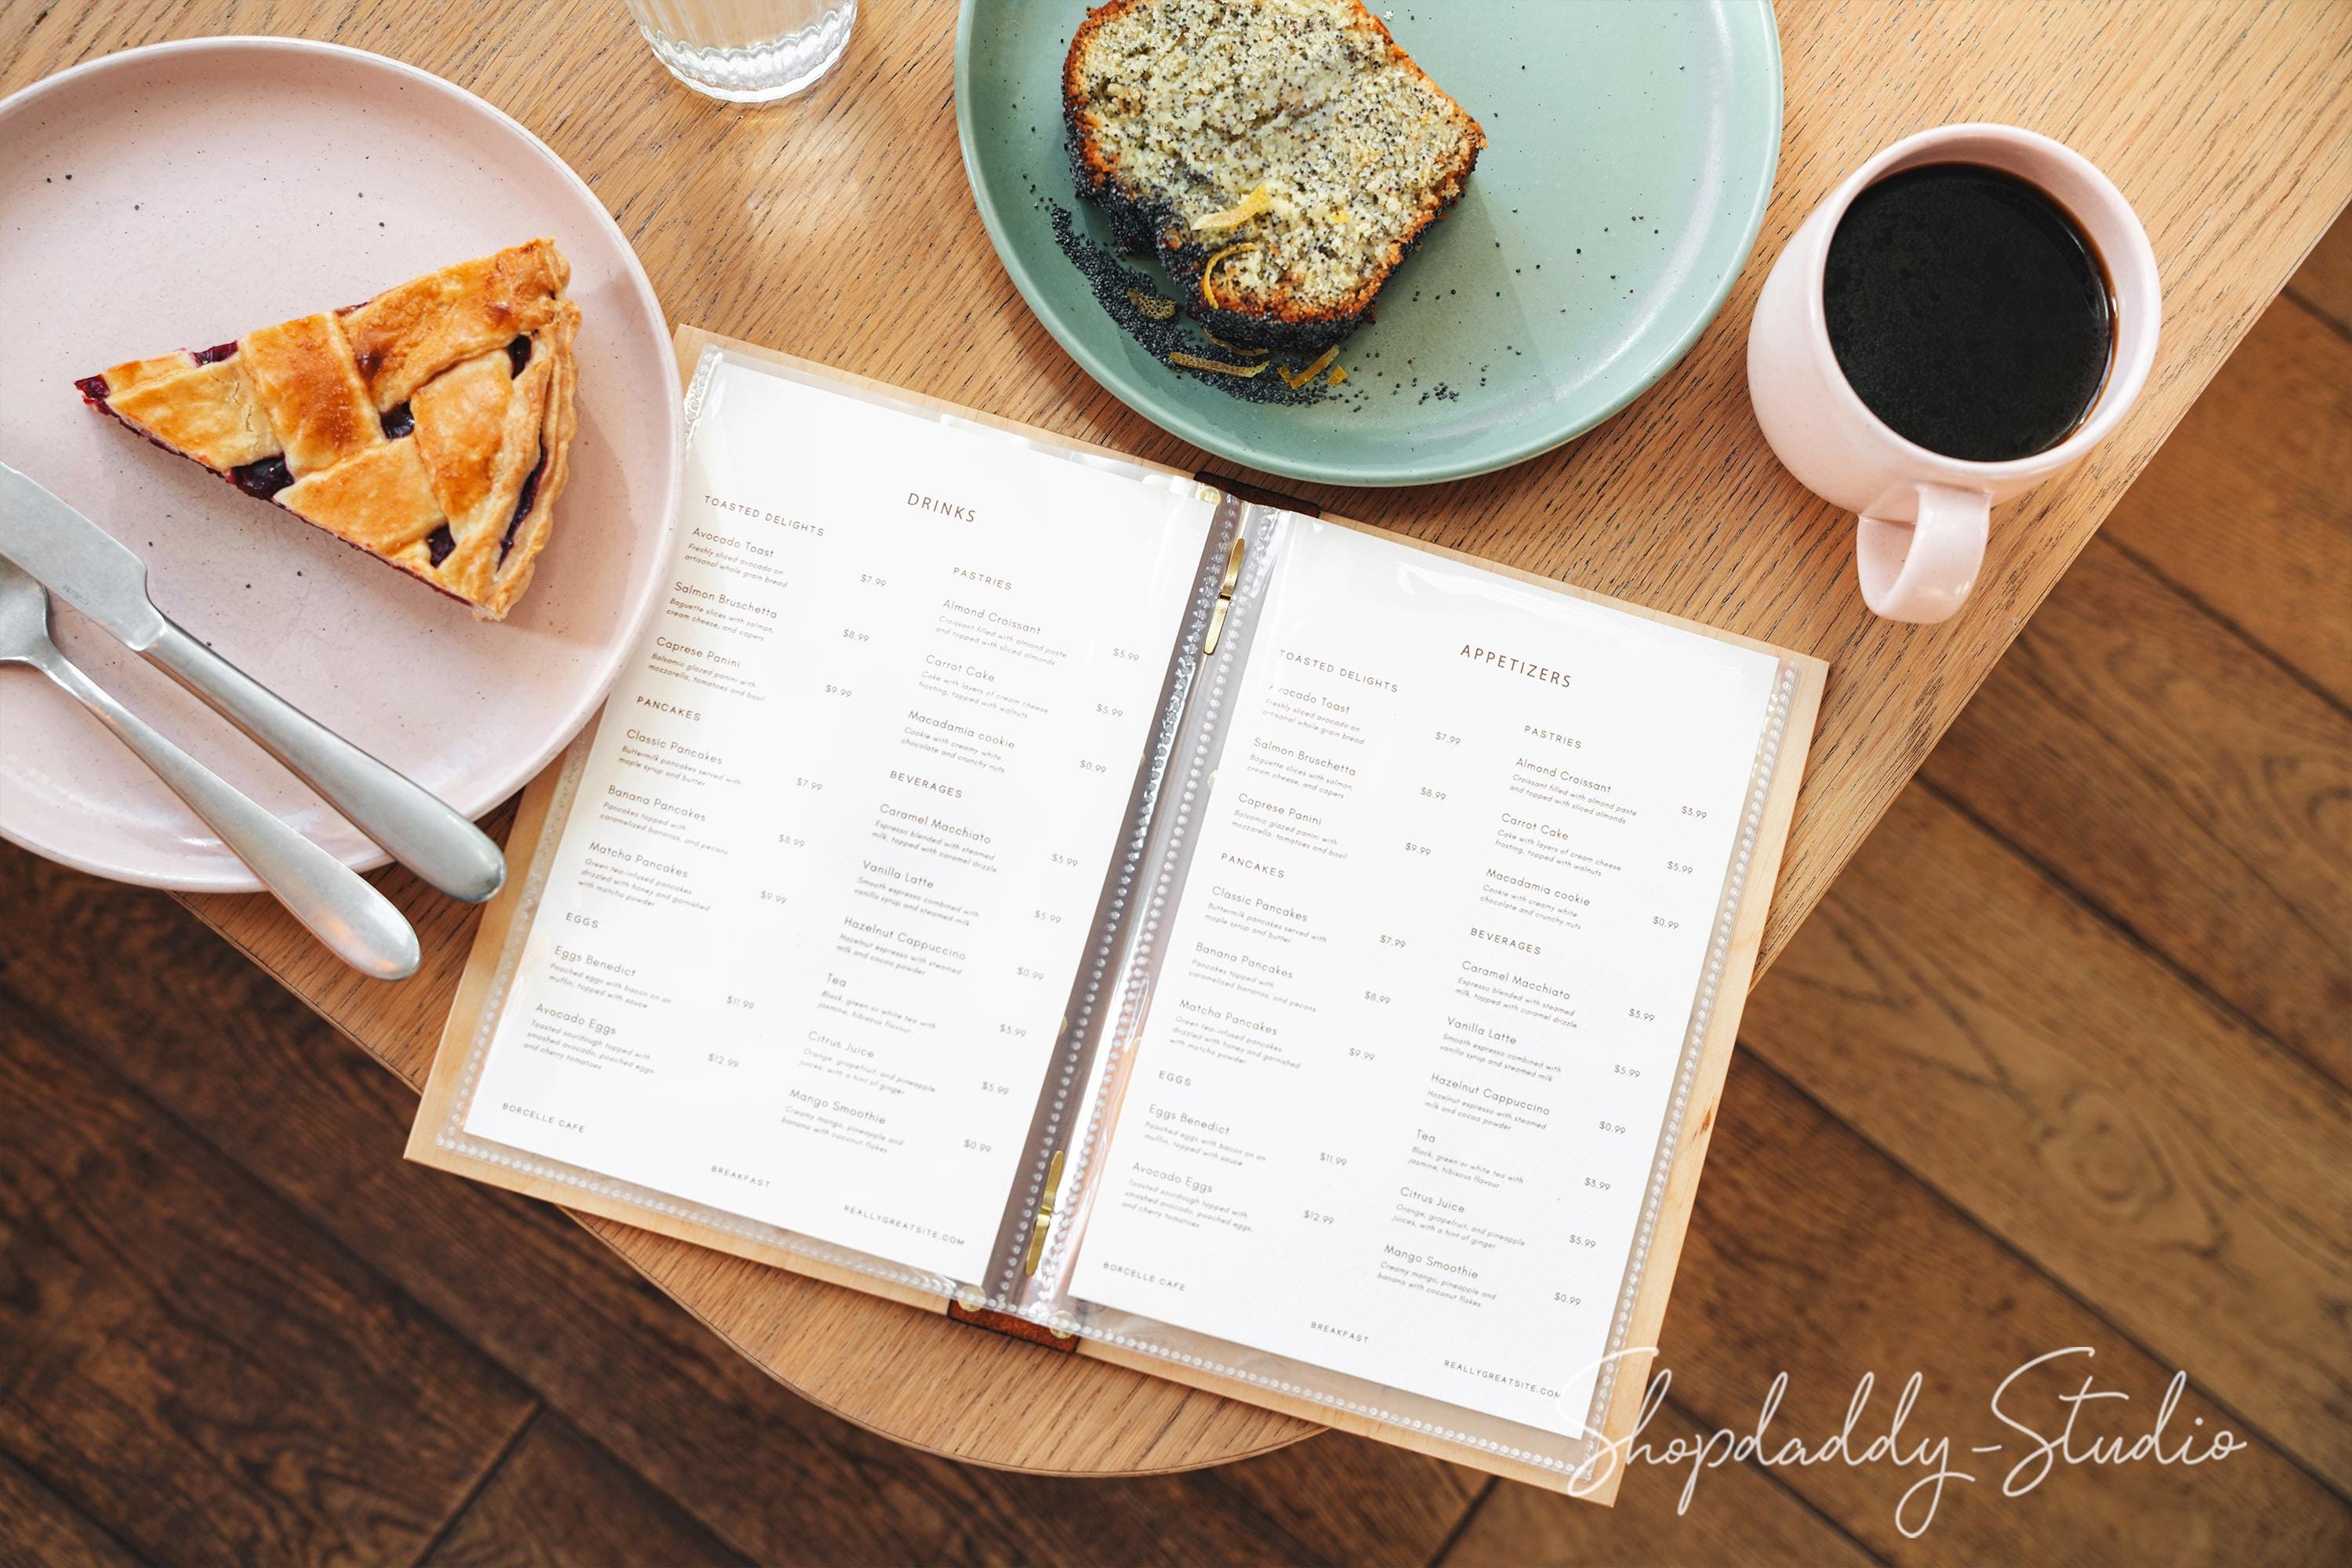 DRINKS
TOASTED DELIGHTS
Avocado Toast
Freshly sliced avocado on
artisanal whole grain bread
$7.99
Salmon Bruschetta
Baguette slices with salmon,
cream cheese, and capers
$8.99
Caprese Panini
Balsamic glazed panini with
mozzarella, tomatoes and basil
$9.99
PANCAKES
Classic Pancakes
Buttermilk pancakes served with
maple syrup and butter
$7.99
Banana Pancakes
Pancakes topped with
caramelized bananas, and pecans
$8.99
Matcha Pancakes
Green tea-infused pancakes
drizzled with honey and garnished
with matcha powder
$9.99
EGGS
Eggs Benedict
Poached eggs with bacon on an
muffin, topped with sauce
$11.99
Avocado Eggs
Toasted sourdough topped with
smashed avocado, poached eggs,
and cherry tomatoes
$12.99
PASTRIES
Almond Croissant
Croissant filled with almond paste
and topped with sliced almonds
$3.99
Carrot Cake
Cake with layers of cream cheese
frosting, topped with walnuts
$5.99
Macadamia cookie
Cookie with creamy white
chocolate and crunchy nuts
$0.99
BEVERAGES
Caramel Macchiato
Espresso blended with steamed
milk, topped with caramel drizzle
$3.99
Vanilla Latte
Smooth espresso combined with
vanilla syrup and steamed milk
$5.99
Hazelnut Cappuccino
Hazelnut espresso with steamed
milk and cocoa powder
$0.99
Tea
Black, green or white tea with
jasmine, hibiscus flavour
$3.99
Citrus Juice
Orange, grapefruit, and pineapple
juices, with a hint of ginger
$5.99
Mango Smoothie
Creamy mango, pineapple and
banana with coconut flakes
$0.99
BORCELLE CAFE
BREAKFAST
REALLYGREATSITE.COM
APPETIZERS
TOASTED DELIGHTS
Avocado Toast
Freshly sliced avocado on
artisanal whole grain bread
$7.99
Salmon Bruschetta
Baguette slices with salmon,
cream cheese, and capers
$8.99
Caprese Panini
Balsamic glazed panini with
mozzarella, tomatoes and basil
$9.99
PANCAKES
Classic Pancakes
Buttermilk pancakes served with
maple syrup and butter
$7.99
Banana Pancakes
Pancakes topped with
caramelized bananas, and pecans
$8.99
Matcha Pancakes
Green tea-infused pancakes
drizzled with honey and garnished
with matcha powder
$9.99
EGGS
Eggs Benedict
Poached eggs with bacon on an
muffin, topped with sauce
$11.99
Avocado Eggs
Toasted sourdough topped with
smashed avocado, poached eggs,
and cherry tomatoes
$12.99
PASTRIES
Almond Croissant
Croissant filled with almond paste
and topped with sliced almonds
$3.99
Carrot Cake
Cake with layers of cream cheese
frosting, topped with walnuts
$5.99
Macadamia cookie
Cookie with creamy white
chocolate and crunchy nuts
$0.99
BEVERAGES
Caramel Macchiato
Espresso blended with steamed
milk, topped with caramel drizzle
$3.99
Vanilla Latte
Smooth espresso combined with
vanilla syrup and steamed milk
$5.99
Hazelnut Cappuccino
Hazelnut espresso with steamed
milk and cocoa powder
$0.99
Tea
Black, green or white tea with
jasmine, hibiscus flavour
$3.99
Citrus Juice
Orange, grapefruit, and pineapple
juices, with a hint of ginger
$5.99
Mango Smoothie
Creamy mango, pineapple and
banana with coconut flakes
$0.99
BORCELLE CAFE
BREAKFAST
REALLYGREATSITE.COM
Shopdaddy-Studio